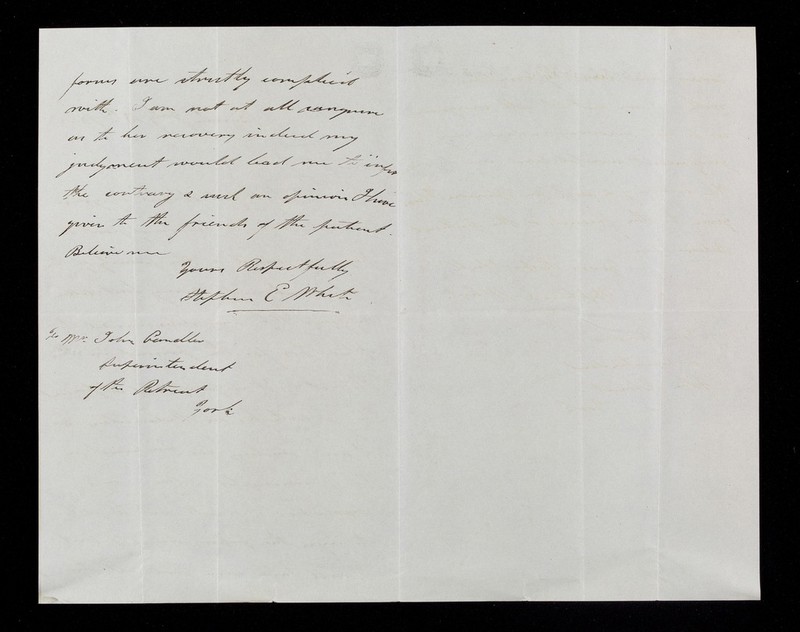 forms are strictly complied
with. I am not at all sanguine
as to her recovery indeed my
judgment would lead me to infer
the contrary & such an opinion I have
given to the friends of the patient.
Believe me
Yours Respectfully
Stephen E White
To Mr. John Candler
Superintendent
of the Retreat
York